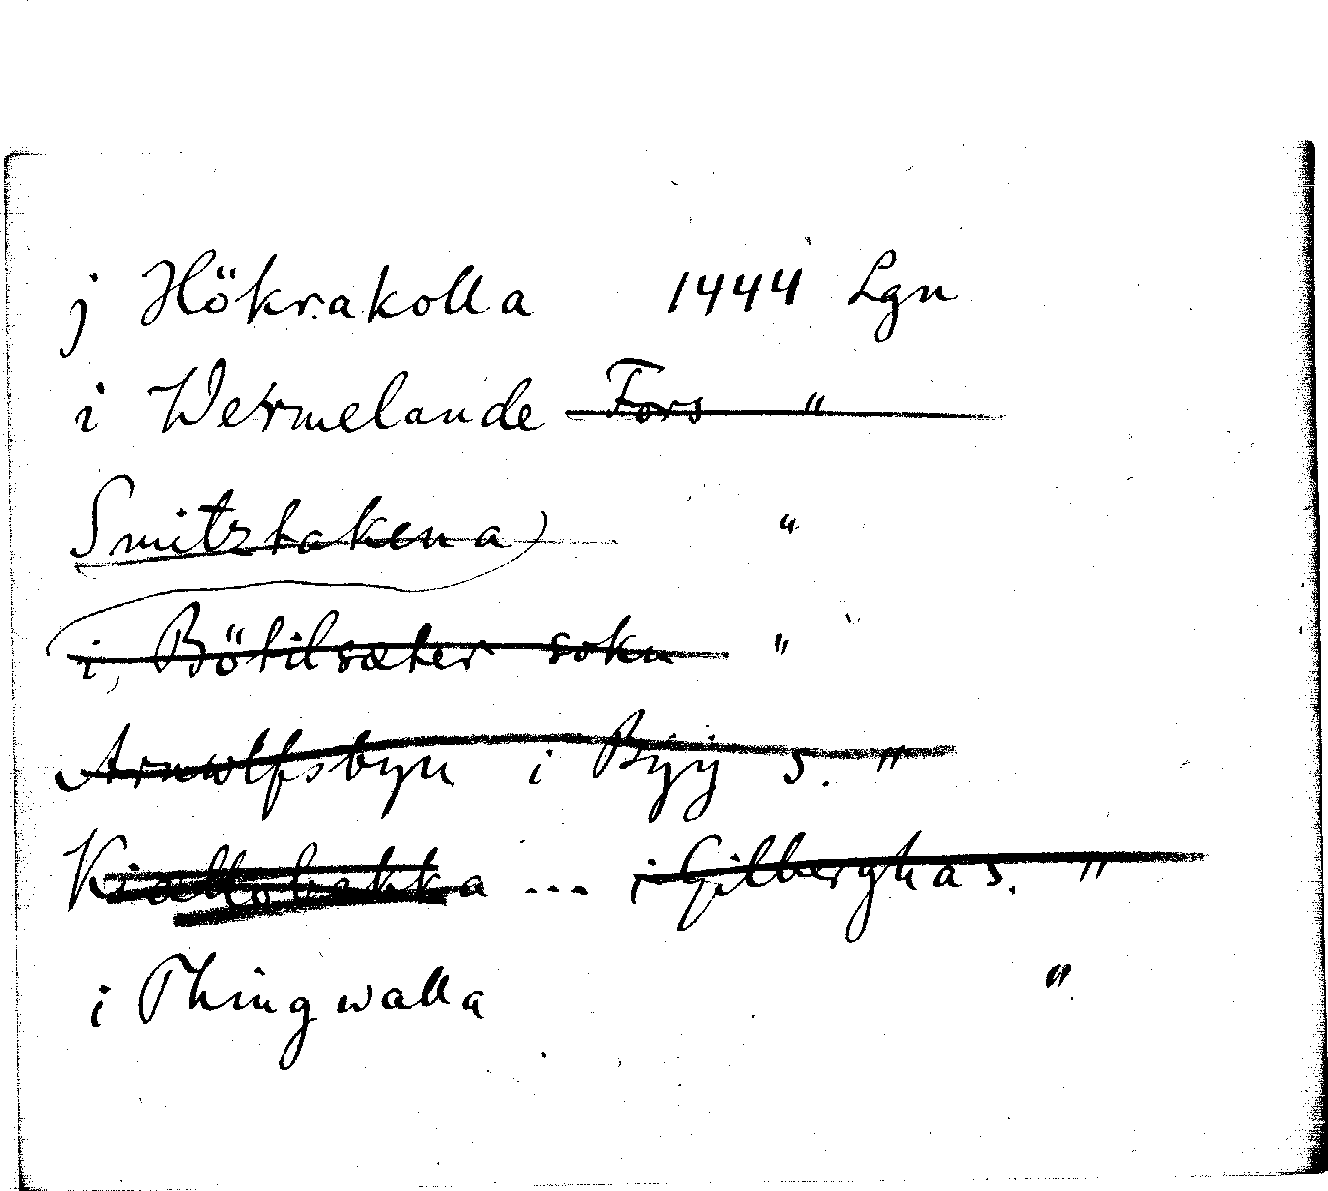 j Hökrakolla 1444 Lgn
i Wermelande Fors "
Smitzbakena "
i, Bötilsæter sokn "
Arnwlfsbyn i Bÿÿ s. "
Kiallobakka ... i Gilbergha s. "
i Thingwalla "